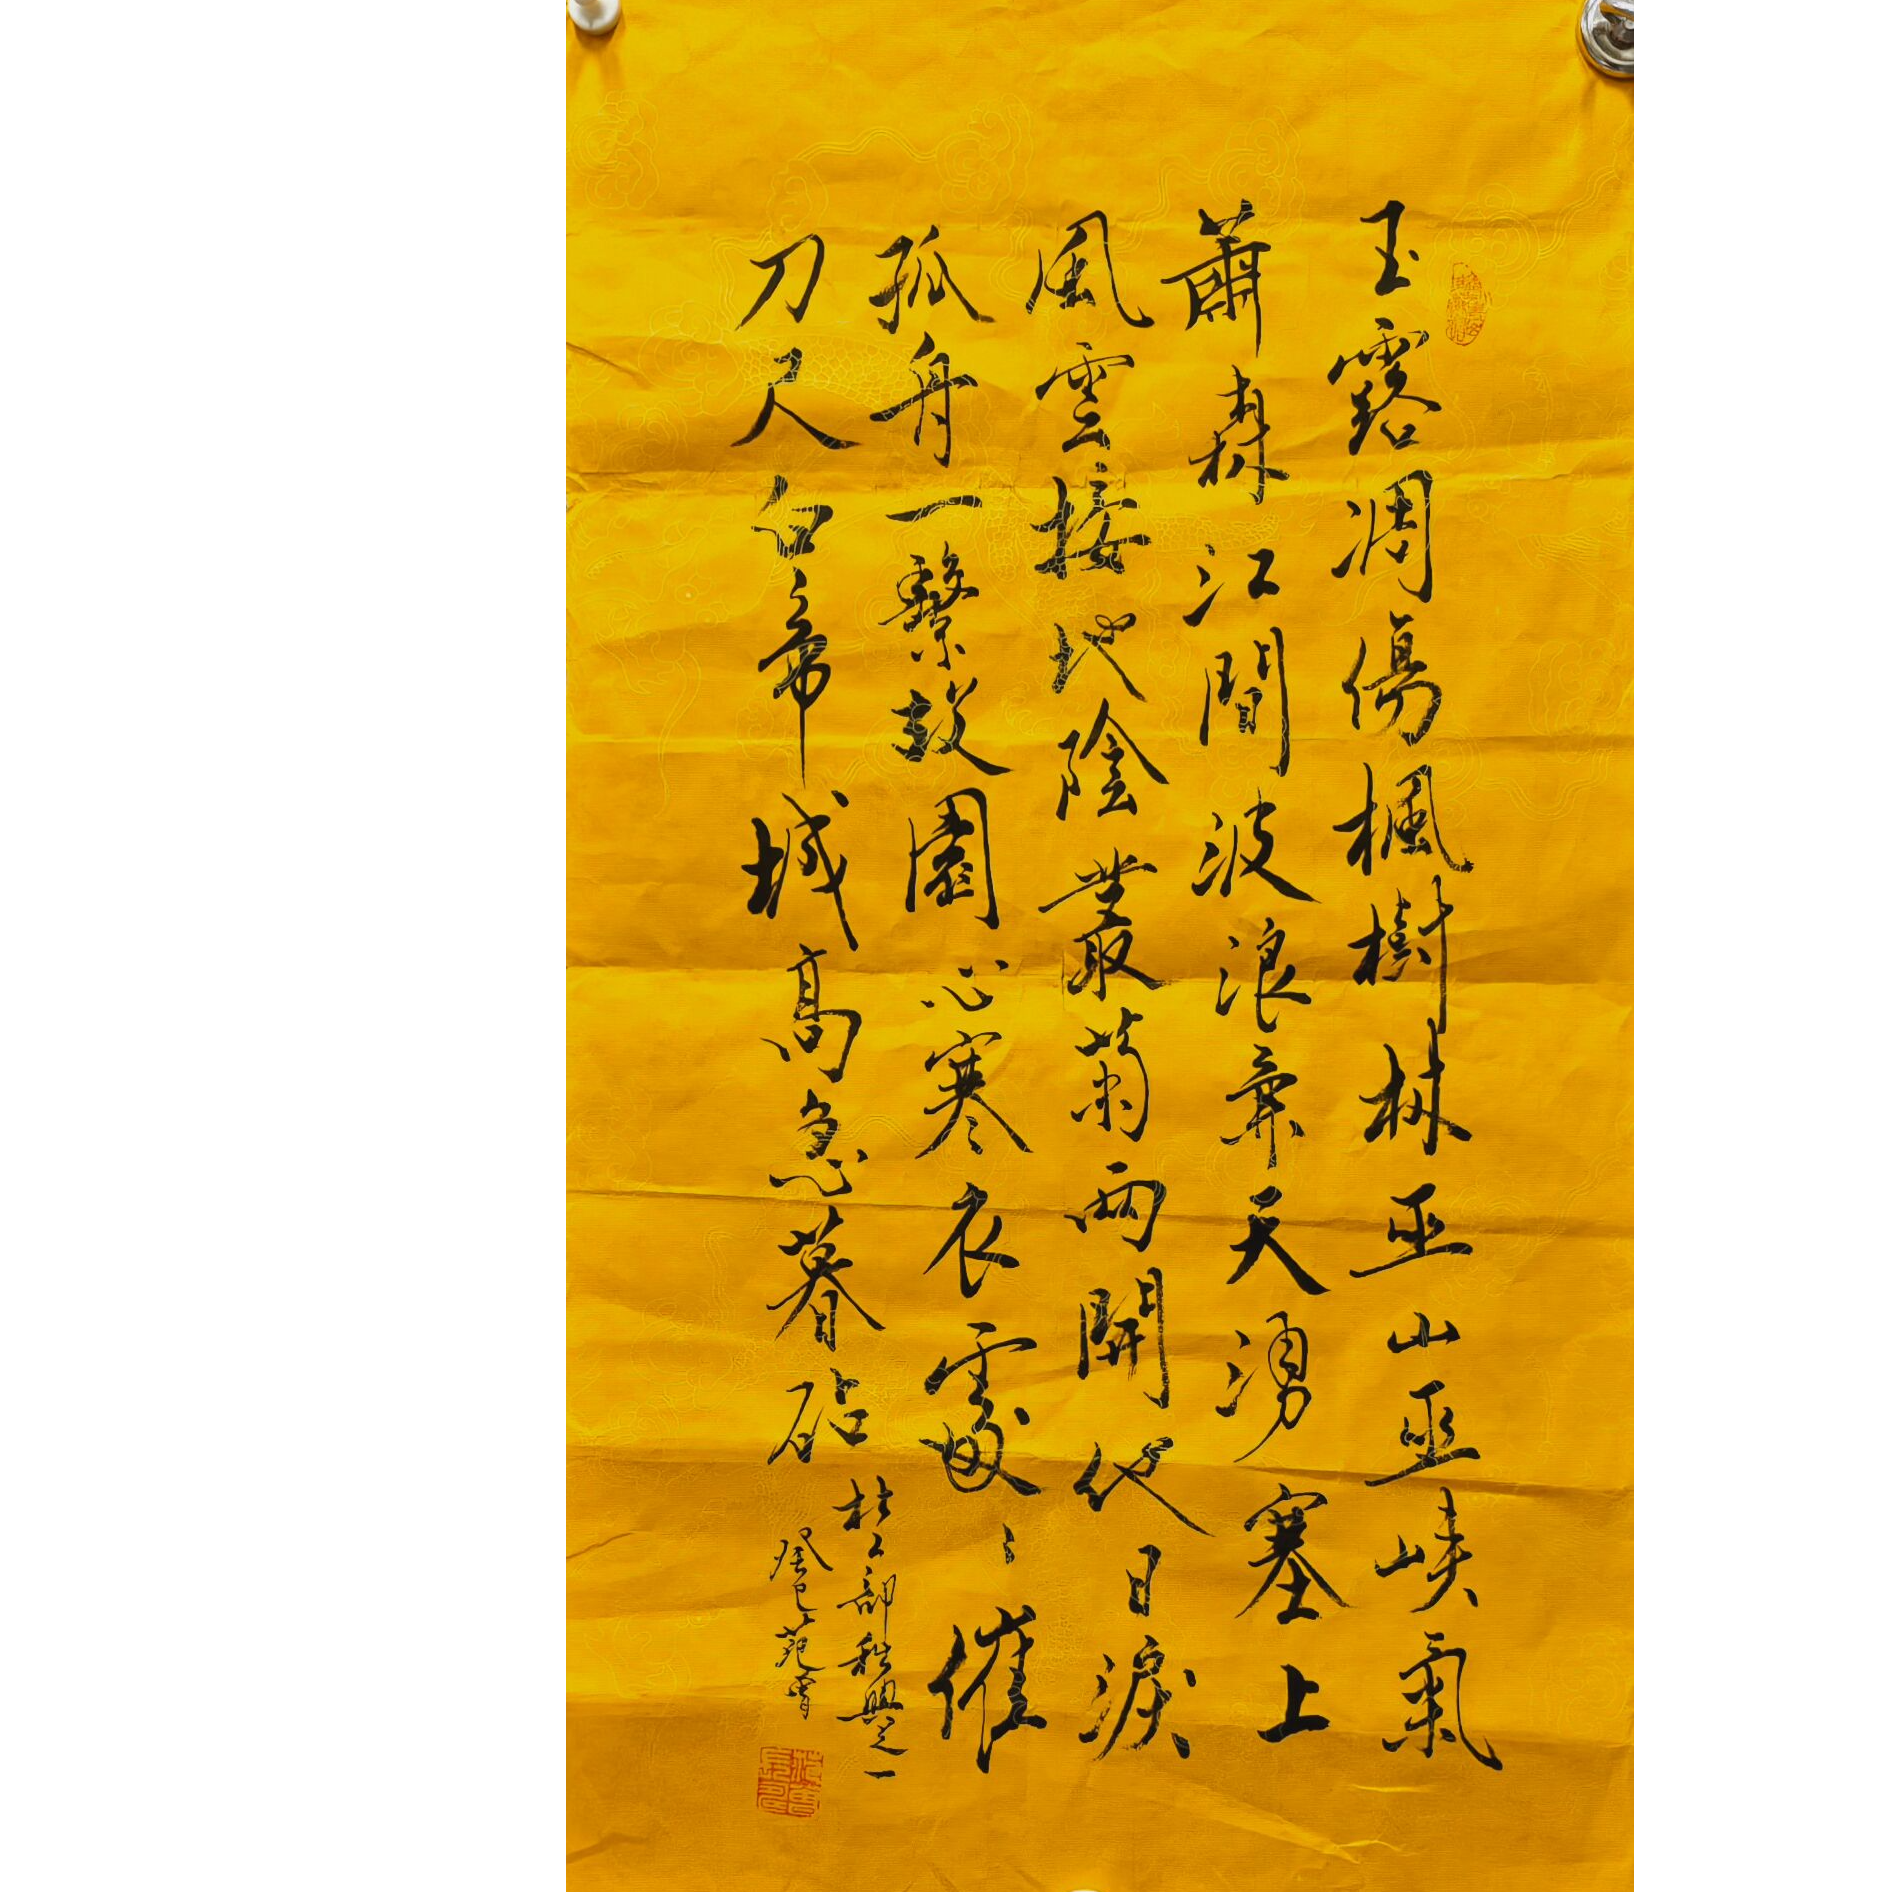 玉露凋傷楓樹林巫山巫峽氣
蕭森江間波浪兼天湧塞上
風雲接地陰叢菊兩開他日淚
孤舟一繫故園心寒衣處〻催
刀尺白帝城高急暮砧
杜工部秋興之一
癸巳苑